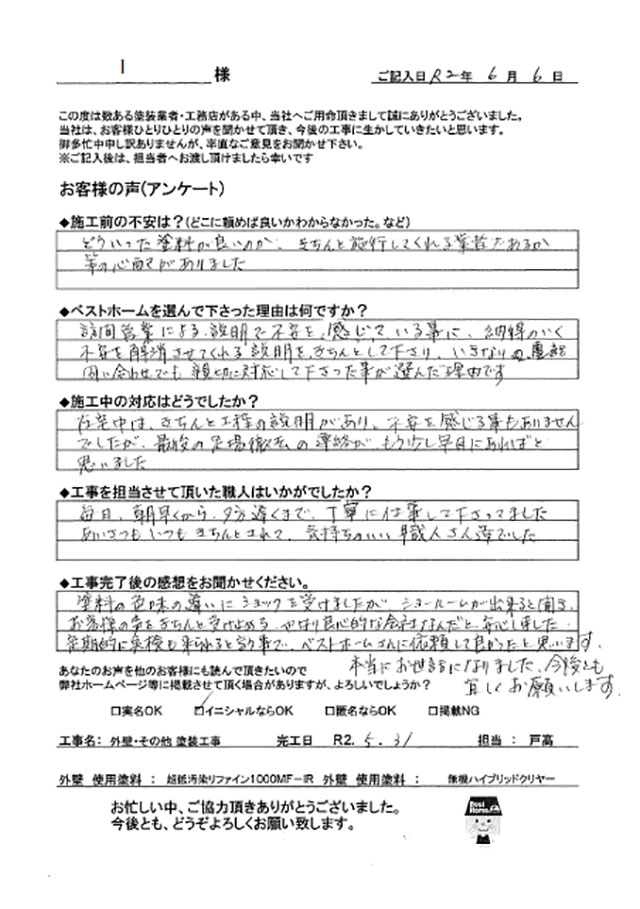 I 様
ご記入日 R2年 6月 6日
この度は数ある塗装業者・工務店がある中、当社へご用命頂きまして誠にありがとうございました。
当社は、お客様ひとりひとりの声を聞かせて頂き、今後の工事に生かしていきたいと思います。
御多忙中申し訳ありませんが、率直なご意見をお聞かせ下さい。
※ご記入後は、担当者へお渡し頂けましたら幸いです
お客様の声(アンケート)
◆施工前の不安は？(どこに頼めば良いかわからなかった。など)
どういった塗料が良いのか、きちんと施行してくれる業者であるか
等の心配がありました
◆ベストホームを選んで下さった理由は何ですか？
訪問営業による説明で不安を感じている事に、納得のいく
不安を解消させてくれる説明をきちんとして下さり、いきなりの電話
問い合わせでも親切に対応して下さった事が選んだ理由です
◆施工中の対応はどうでしたか？
在宅中は、きちんと工程の説明があり、不安を感じる事もありません
でしたが、最後の足場撤去の連絡が、もう少し早目にあればと
思いました
◆工事を担当させて頂いた職人はいかがでしたか？
毎日、朝早くから、夕方遅くまで、丁寧に仕事して下さってました
あいさつもいつもきちんとされて、気持ちのいい職人さん達でした
◆工事完了後の感想をお聞かせください。
塗料の色味の違いにショックを受けましたが、ショールームが出来ると聞き、
お客様の声をきちんと受け止める、やはり良心的な会社なんだと、安心しました
定期的に点検も来られると言う事で、ベストホームさんに依頼して良かったと思います。
本当にお世話になりました。今後とも
宜しくお願いします。
あなたのお声を他のお客様にも読んで頂きたいので
弊社ホームページ等に掲載させて頂く場合がありますが、よろしいでしょうか？
□実名OK ☑イニシャルならOK □匿名ならOK □掲載NG
工事名： 外壁・その他 塗装工事 完工日 R2. 5. 31 担当 ： 戸高
外壁 使用塗料 ： 超低汚染リファイン1000MF－IR 外壁 使用塗料 ： 無機ハイブリッドクリヤー
お忙しい中、ご協力頂きありがとうございました。
今後とも、どうぞよろしくお願い致します。
Best Home